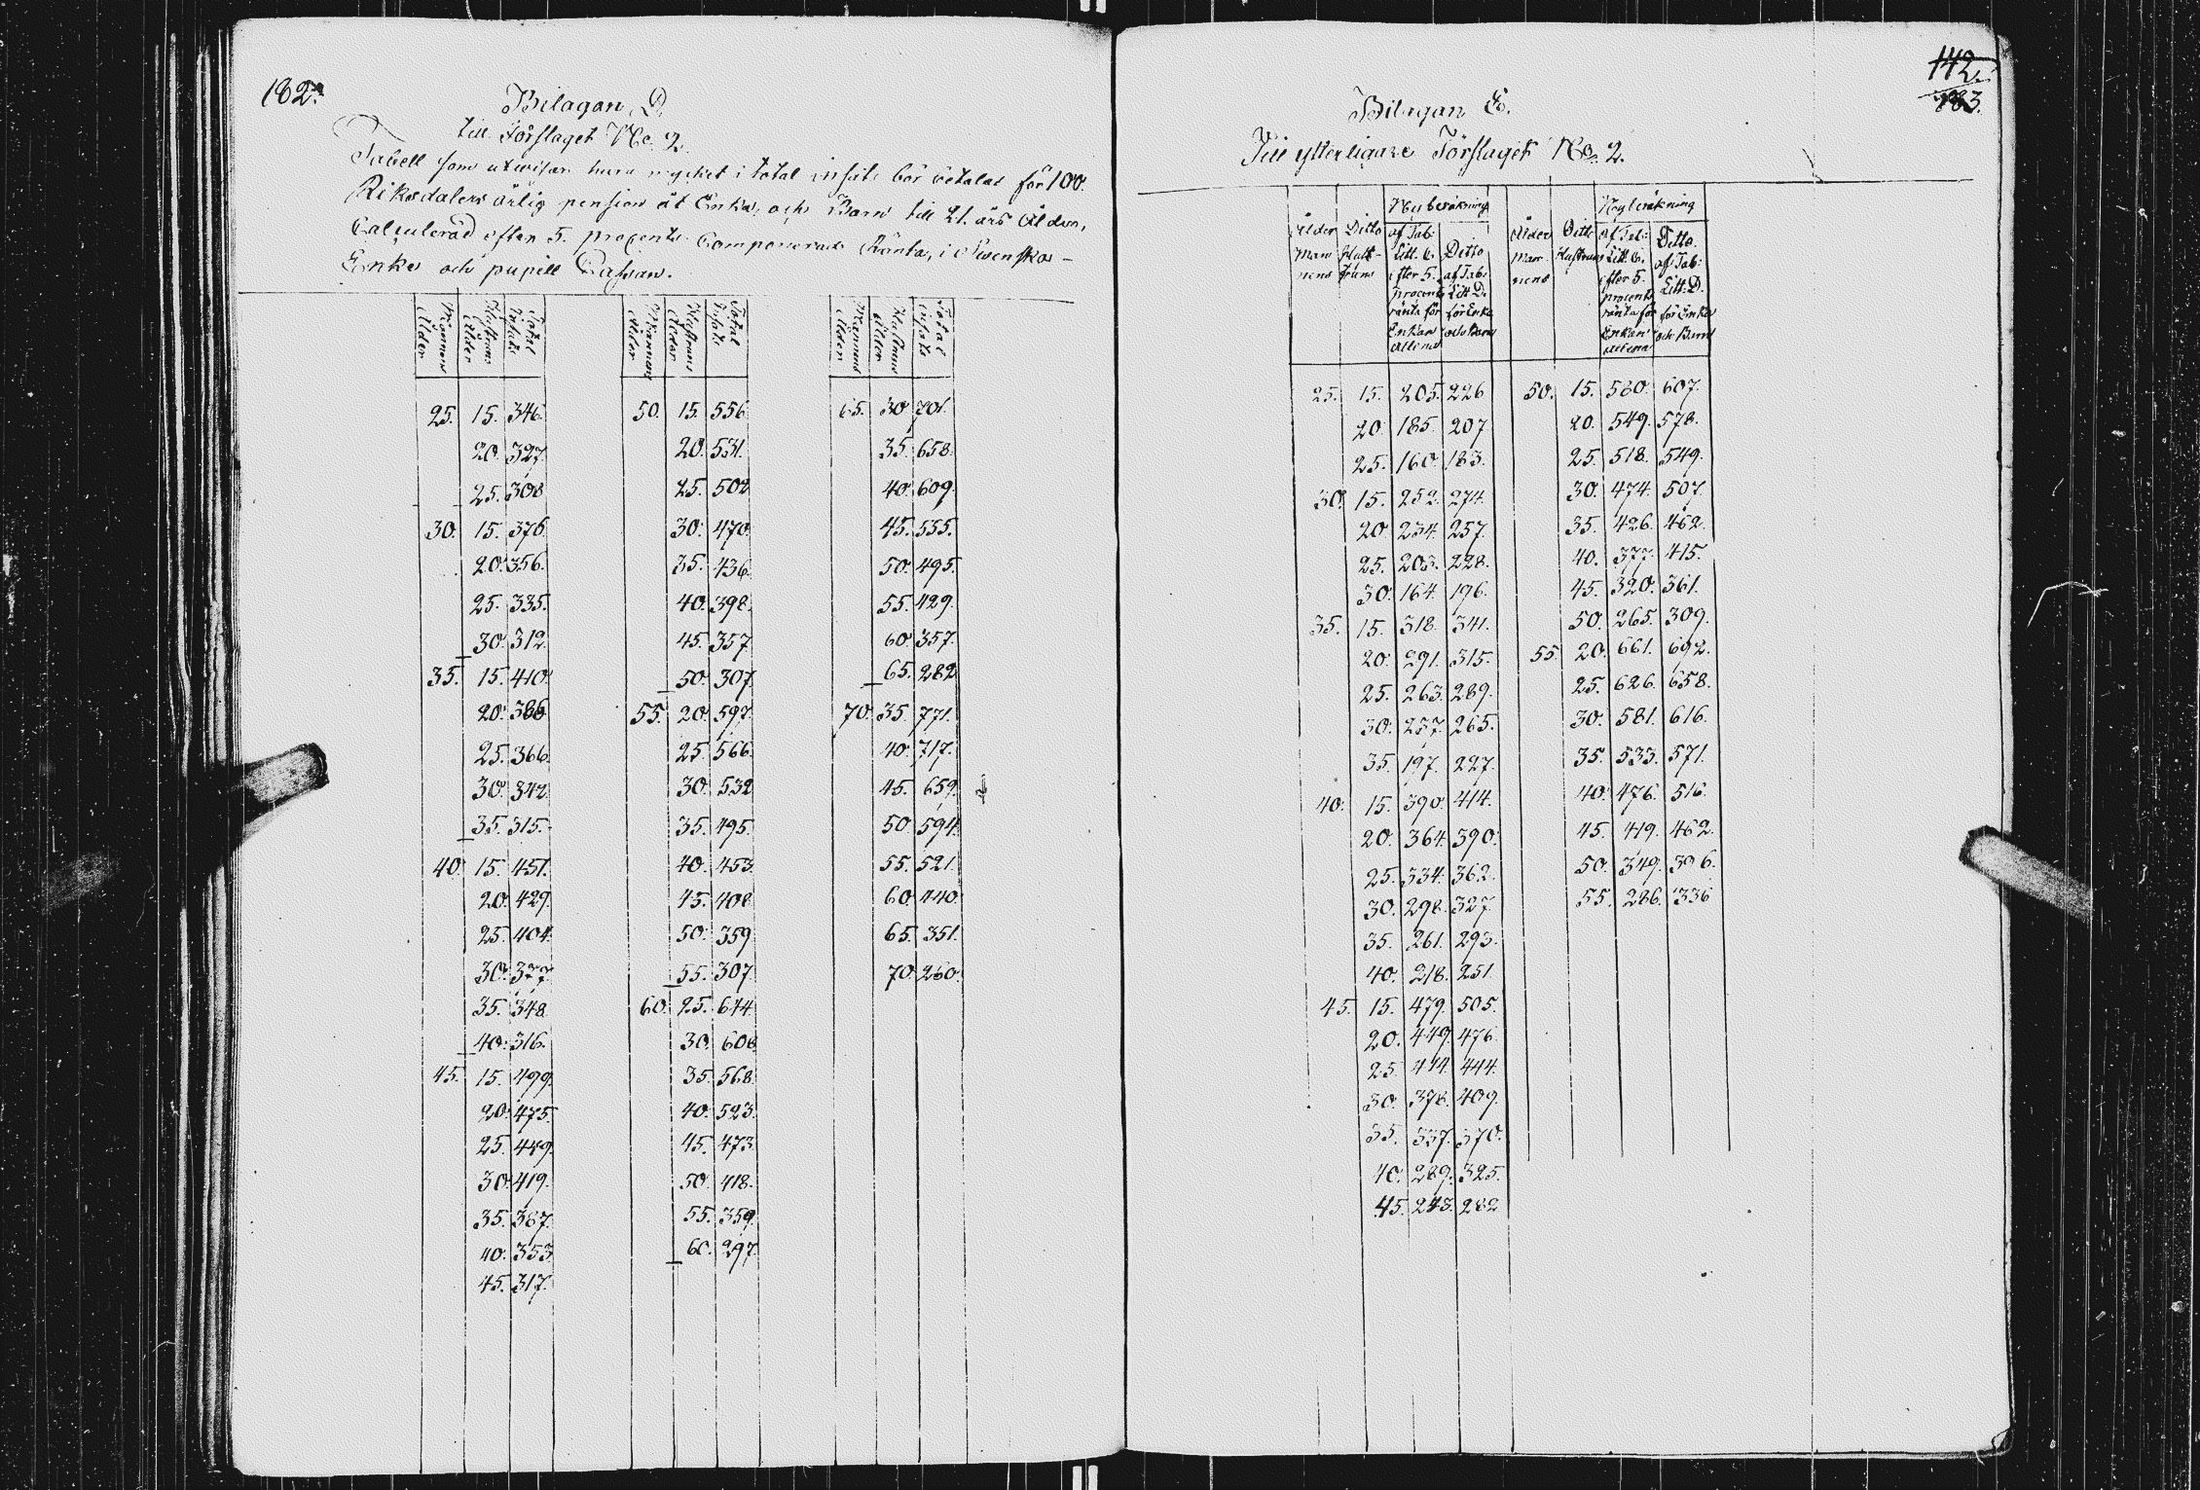 182.
Bilagan, D.
till Förslaget No. 2.
Tabell som utwisar huru mycket i total insats bör betalas för 100.
Riksdalers årlig pension åt Enka, och Barn till 21. års ålder,
Calculerad efter 5. procents Componerad Ränta, i Swenska
Enke och pupill Cassan.
Mannens Ålder Hustruns Ålder Total Insats Mannens Ålder Hustruns Ålder Total Insats Mannens Ålder Hustruns Ålder Total insats
25. 15. 346. 50. 15. 556. 65. 30. 701.
20. 327. 20. 531. 35. 658.
25. 308. 25. 502. 40. 609.
30. 15. 376. 30. 470. 45. 555.
20. 356. 35. 436. 50. 495.
25. 335. 40. 398. 55. 429.
30. 312. 45. 357. 60. 357.
35. 15. 410. 50. 307. 65. 282
20. 386. 55. 20. 597. 70. 35. 771.
25. 366. 25. 566. 40. 717.
30. 342. 30. 532 45. 659.
35. 315. 35. 495. 50. 594.
40. 15. 451. 40. 453. 55. 521.
20. 429. 45. 408. 60. 440.
25. 404. 50. 359. 65. 351.
30. 377. 55. 307. 70. 260.
35. 348. 60. 25. 644.
40. 316. 30. 608.
45. 15. 499. 35. 568.
20. 475. 40. 523.
25. 449. 45. 473.
30. 419. 50. 418.
35. 387. 55. 359.
40. 353. 60. 297.
45. 317.
142.
183.
Bilagan E.
Till ytterligare Förslaget No. 2.
Ålder Mannens Ditto Hustruns Nybesräkning af Tab: Litt. C. efter 5. procents ränta för Enkan allena Ditto af Tab: Litt. D. för Enka och Barn Ålder Mannens Ditto Hustruns Nybesräkning af Tab: Litt. C. efter 5. procents ränta för Enkan allena Ditto. af Tab: Litt. D. för Enka och Barn
25. 15. 205. 226 50. 15. 580. 607.
20. 185. 207 20. 549. 578.
25. 160. 183. 25. 518. 549.
30. 15. 252. 274. 30. 474. 507.
20. 234. 257. 35. 426. 462.
25. 203. 228. 40. 377. 415.
30. 164. 196. 45. 320. 361.
35. 15. 318. 341. 50. 265. 309.
20. 291. 315. 55. 20. 661. 692.
25. 263. 289. 25. 626. 658.
30. 237. 265. 30. 581. 616.
35. 197. 227. 35. 533. 571.
40. 15. 390. 414. 40. 476. 516.
20. 364. 390. 45. 419. 462.
25. 334. 362. 50. 349. 396.
30. 298. 327. 55. 286. 336
35. 261. 293.
40. 218. 251
45. 15. 479. 505.
20. 449. 476.
25. 414. 444.
30. 378. 409.
35. 337. 370.
40. 289. 325.
45. 243. 282